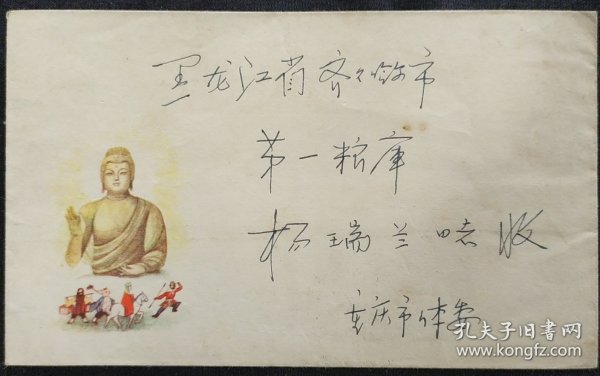 黑龙江省齐々哈尔市
第一粮库
杨瑞兰 收
安庆市体委
孔夫子旧书网
www.kongfz.com